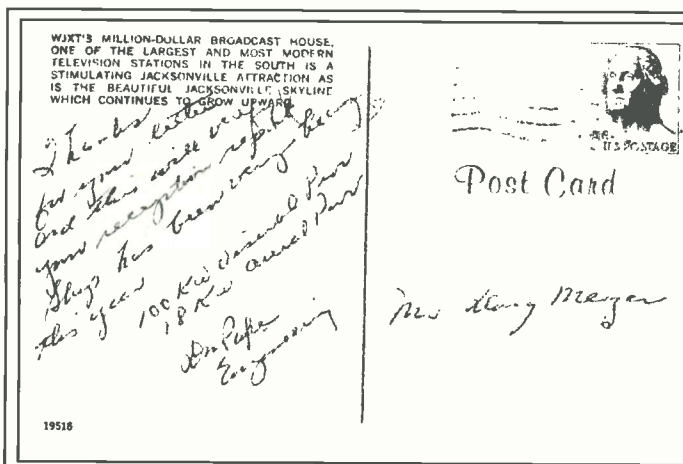 WJXT'S MILLION-DOLLAR BROADCAST HOUSE,
ONE OF THE LARGEST AND MOST MODERN
TELEVISION STATIONS IN THE SOUTH IS A
STIMULATING JACKSONVILLE ATTRACTION AS
IS THE BEAUTIFUL JACKSONVILLE SKYLINE
WHICH CONTINUES TO GROW UPWARD.
Thanks
for your letter
and this will verify
your reception report
Skip has been very heavy
this year
100 KW Visual Pwr
18 KW Aural Pwr
Engineering
19518
U.S. POSTAGE
Post Card
Mr